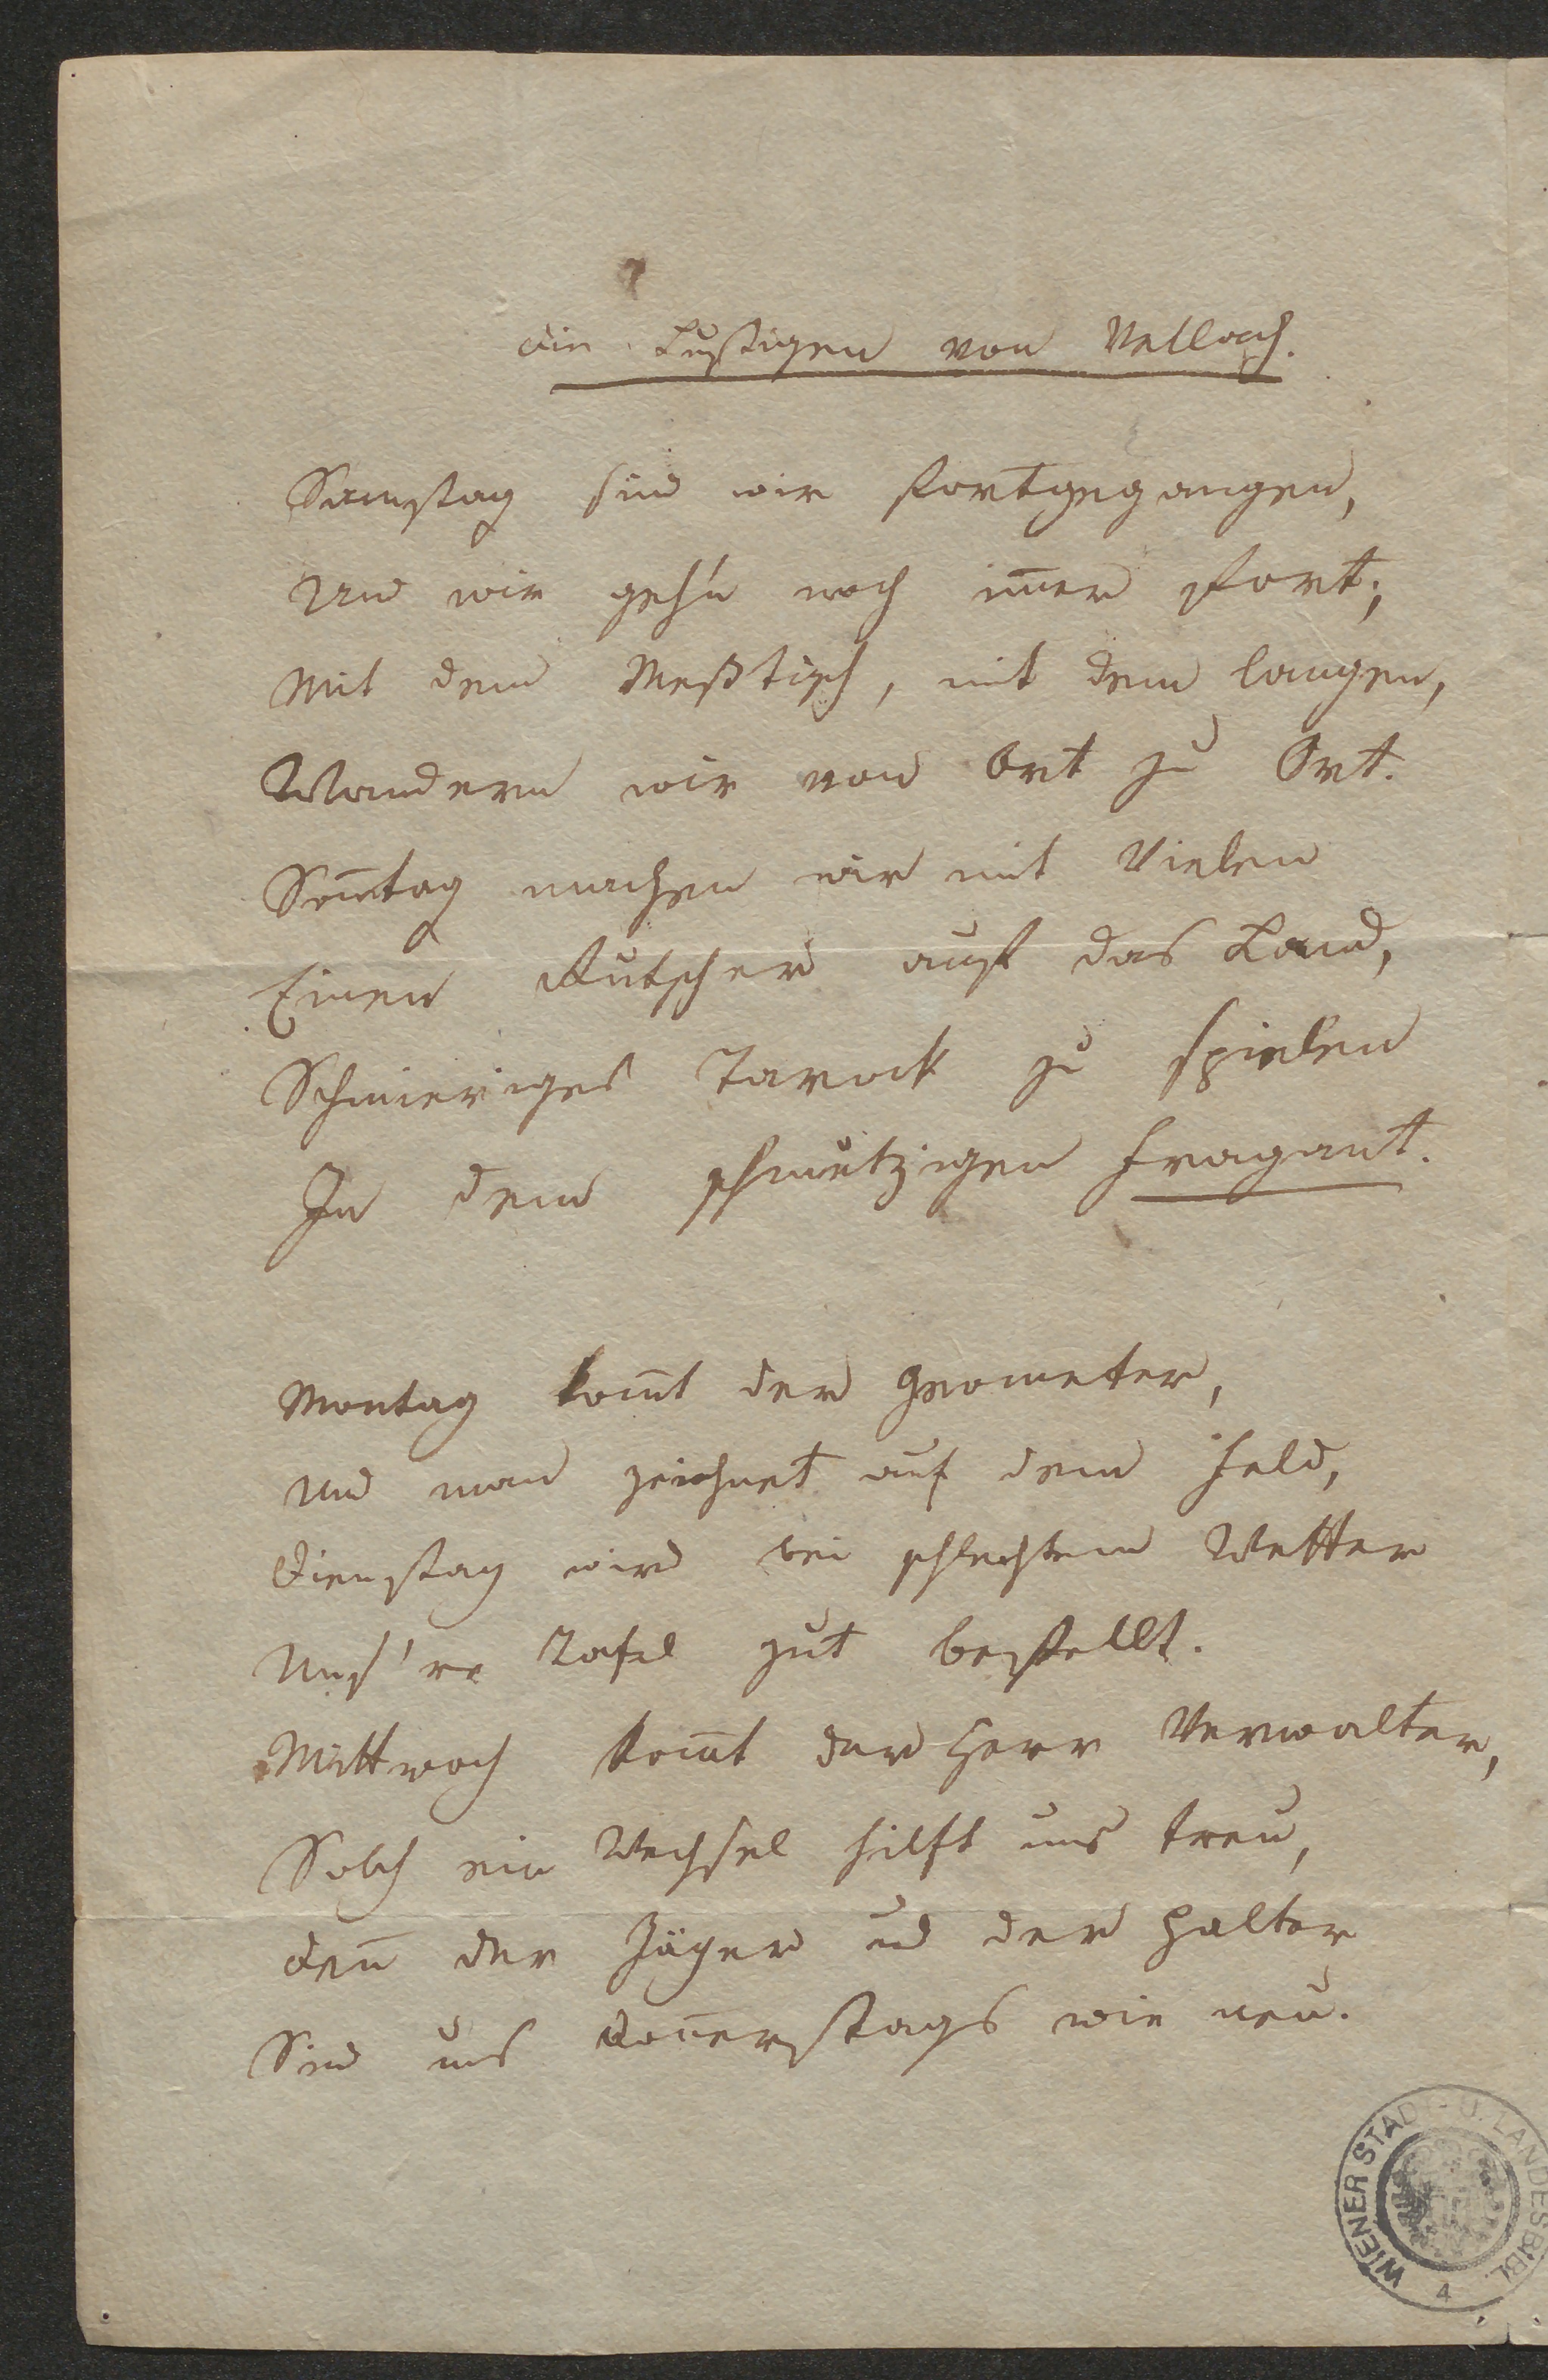 Die Lustigen von Vellach.
Samstag sind wir fortgegangen,
Und wir geh'n noch im̅er fort;
Mit dem Meßtisch, mit dem langen,
Wandern wir von Ort zu Ort.
Son̅tag machen wir mit Vielen
Einen Rutscher auf das Land,
Schmieriges Tarock zu spielen
In dem schmutzigen Fragant.
Montag kom̅t der Geometer,
Und man zeichnet auf dem Feld,
Dienstag wird bei schlechtem Wetter
Uns're Tafel gut bestellt.
Mittwoch kom̅t der Herr Verwalter,
Solch ein Wechsel hilft uns treu,
Den̅ der Jäger und der Halter
Sind uns Don̅erstags wie neu.
WIENER STADT- U. LANDESBIBL.
4